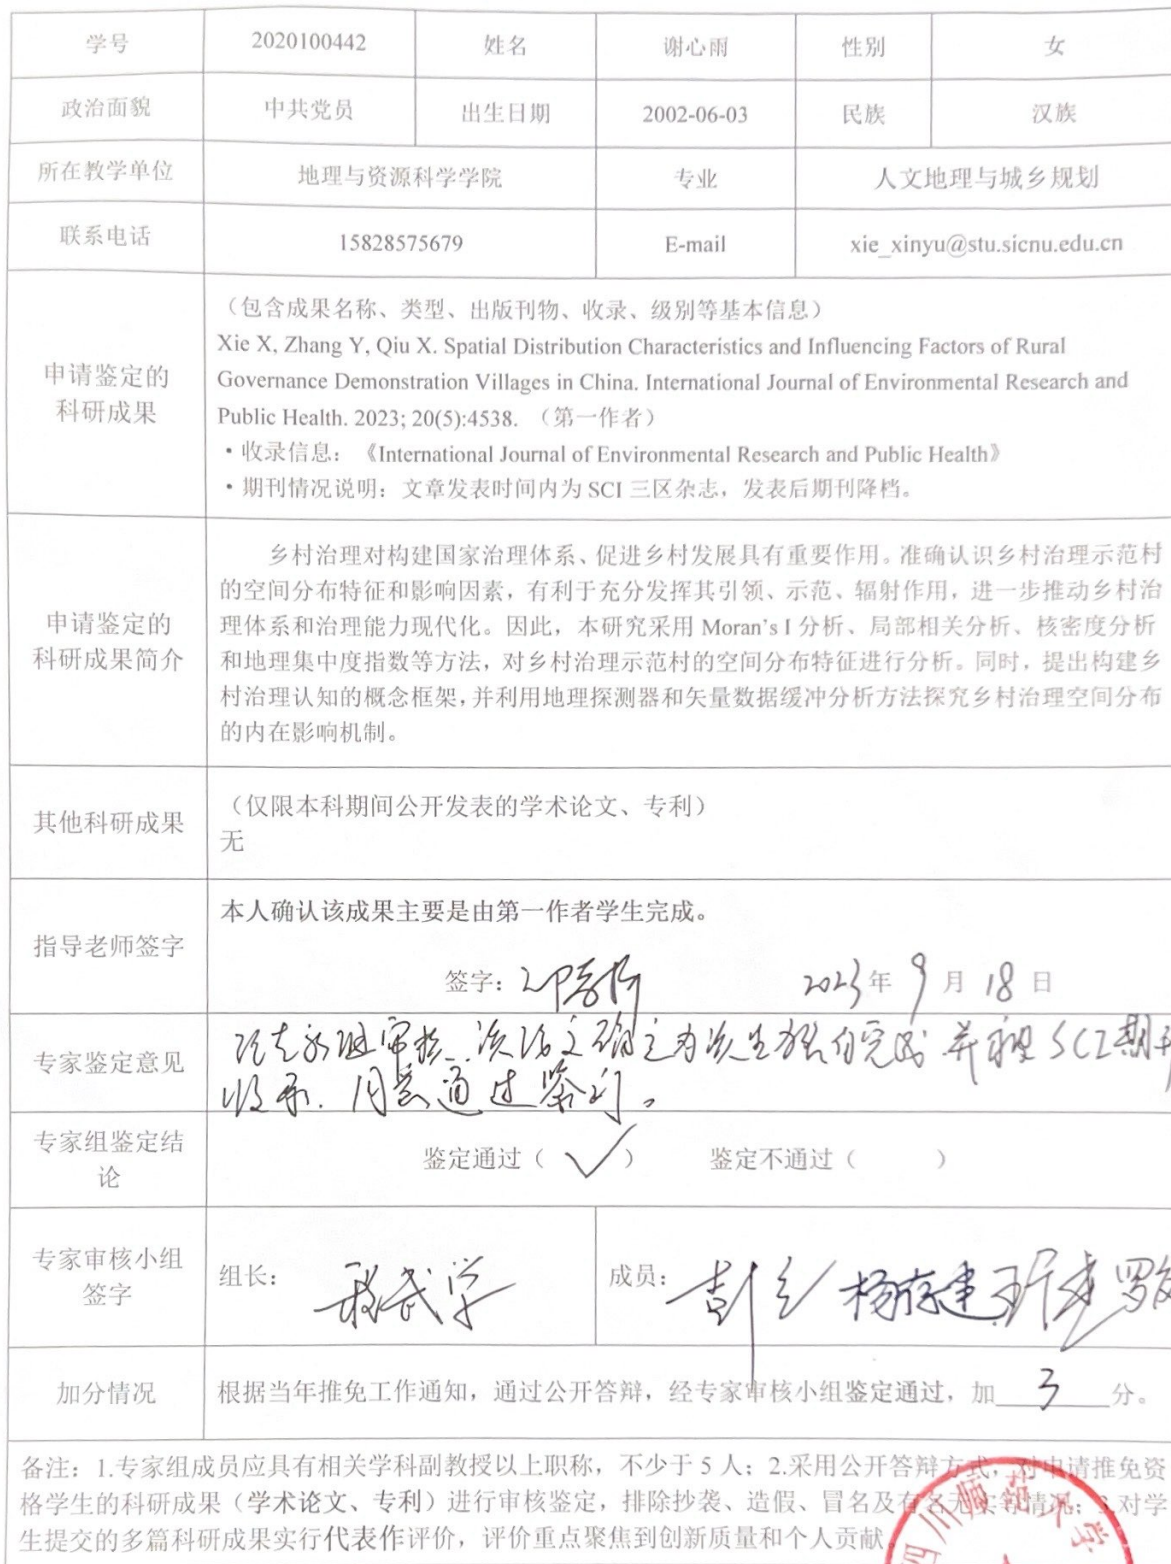 学号 2020100442 姓名 谢心雨 性别 女
政治面貌 中共党员 出生日期 2002-06-03 民族 汉族
所在教学单位 地理与资源科学学院 专业 人文地理与城乡规划
联系电话 15828575679 E-mail xie_xinyu@stu.sicnu.edu.cn
申请鉴定的
科研成果
（包含成果名称、类型、出版刊物、收录、级别等基本信息）
Xie X, Zhang Y, Qiu X. Spatial Distribution Characteristics and Influencing Factors of Rural
Governance Demonstration Villages in China. International Journal of Environmental Research and
Public Health. 2023; 20(5):4538. （第一作者）
・收录信息：《International Journal of Environmental Research and Public Health》
・期刊情况说明：文章发表时间内为 SCI 三区杂志，发表后期刊降档。
申请鉴定的
科研成果简介
乡村治理对构建国家治理体系、促进乡村发展具有重要作用。准确认识乡村治理示范村
的空间分布特征和影响因素，有利于充分发挥其引领、示范、辐射作用，进一步推动乡村治
理体系和治理能力现代化。因此，本研究采用 Moran's I 分析、局部相关分析、核密度分析
和地理集中度指数等方法，对乡村治理示范村的空间分布特征进行分析。同时，提出构建乡
村治理认知的概念框架，并利用地理探测器和矢量数据缓冲分析方法探究乡村治理空间分布
的内在影响机制。
其他科研成果
（仅限本科期间公开发表的学术论文、专利）
无
指导老师签字
本人确认该成果主要是由第一作者学生完成。
签字： 2023年 9 月 18 日
专家鉴定意见
审核 该论文确定为该生独自完成 并被 SCI期刊
收录. 同意通过鉴定。
专家组鉴定结
论
鉴定通过（ ✓ ） 鉴定不通过（ ）
专家审核小组
签字
组长： 成员： 杨存建
加分情况 根据当年推免工作通知，通过公开答辩，经专家审核小组鉴定通过，加 3 分。
备注：1.专家组成员应具有相关学科副教授以上职称，不少于 5 人；2.采用公开答辩方式，对申请推免资
格学生的科研成果（学术论文、专利）进行审核鉴定，排除抄袭、造假、冒名及有名无实等情况；3.对学
生提交的多篇科研成果实行代表作评价，评价重点聚焦到创新质量和个人贡献
四川师范大学